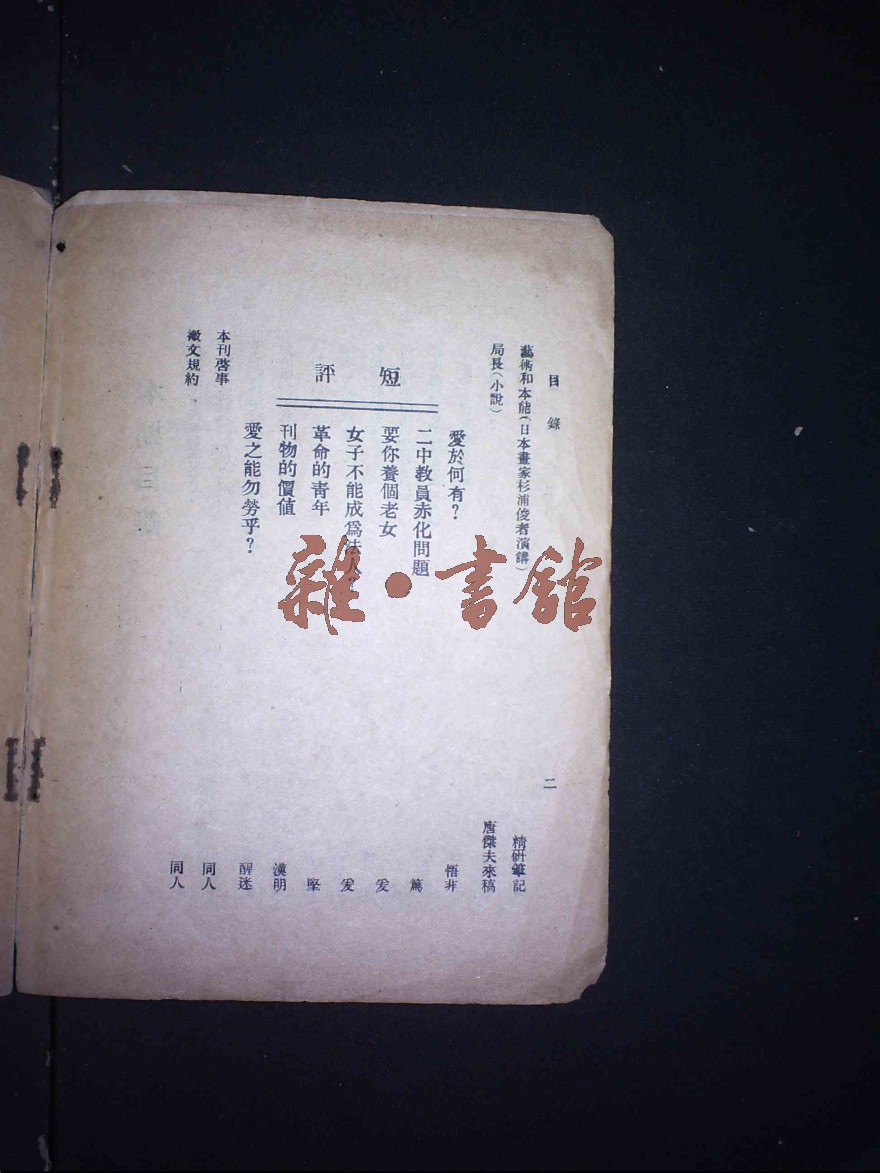 目錄
二
藝術和本能(日本畫家杉浦俊香演講)
精研筆記
局長(小說)
唐傑夫來稿
短評
愛於何有?
悟非
二中教員赤化問題
篤
要你養個老女
爰
女子不能成爲法人?
爰
革命的青年
堅
刊物的價值
漢明
愛之能勿勞乎?
醒迷
本刊啓事
同人
徵文規約
同人
雜·書館